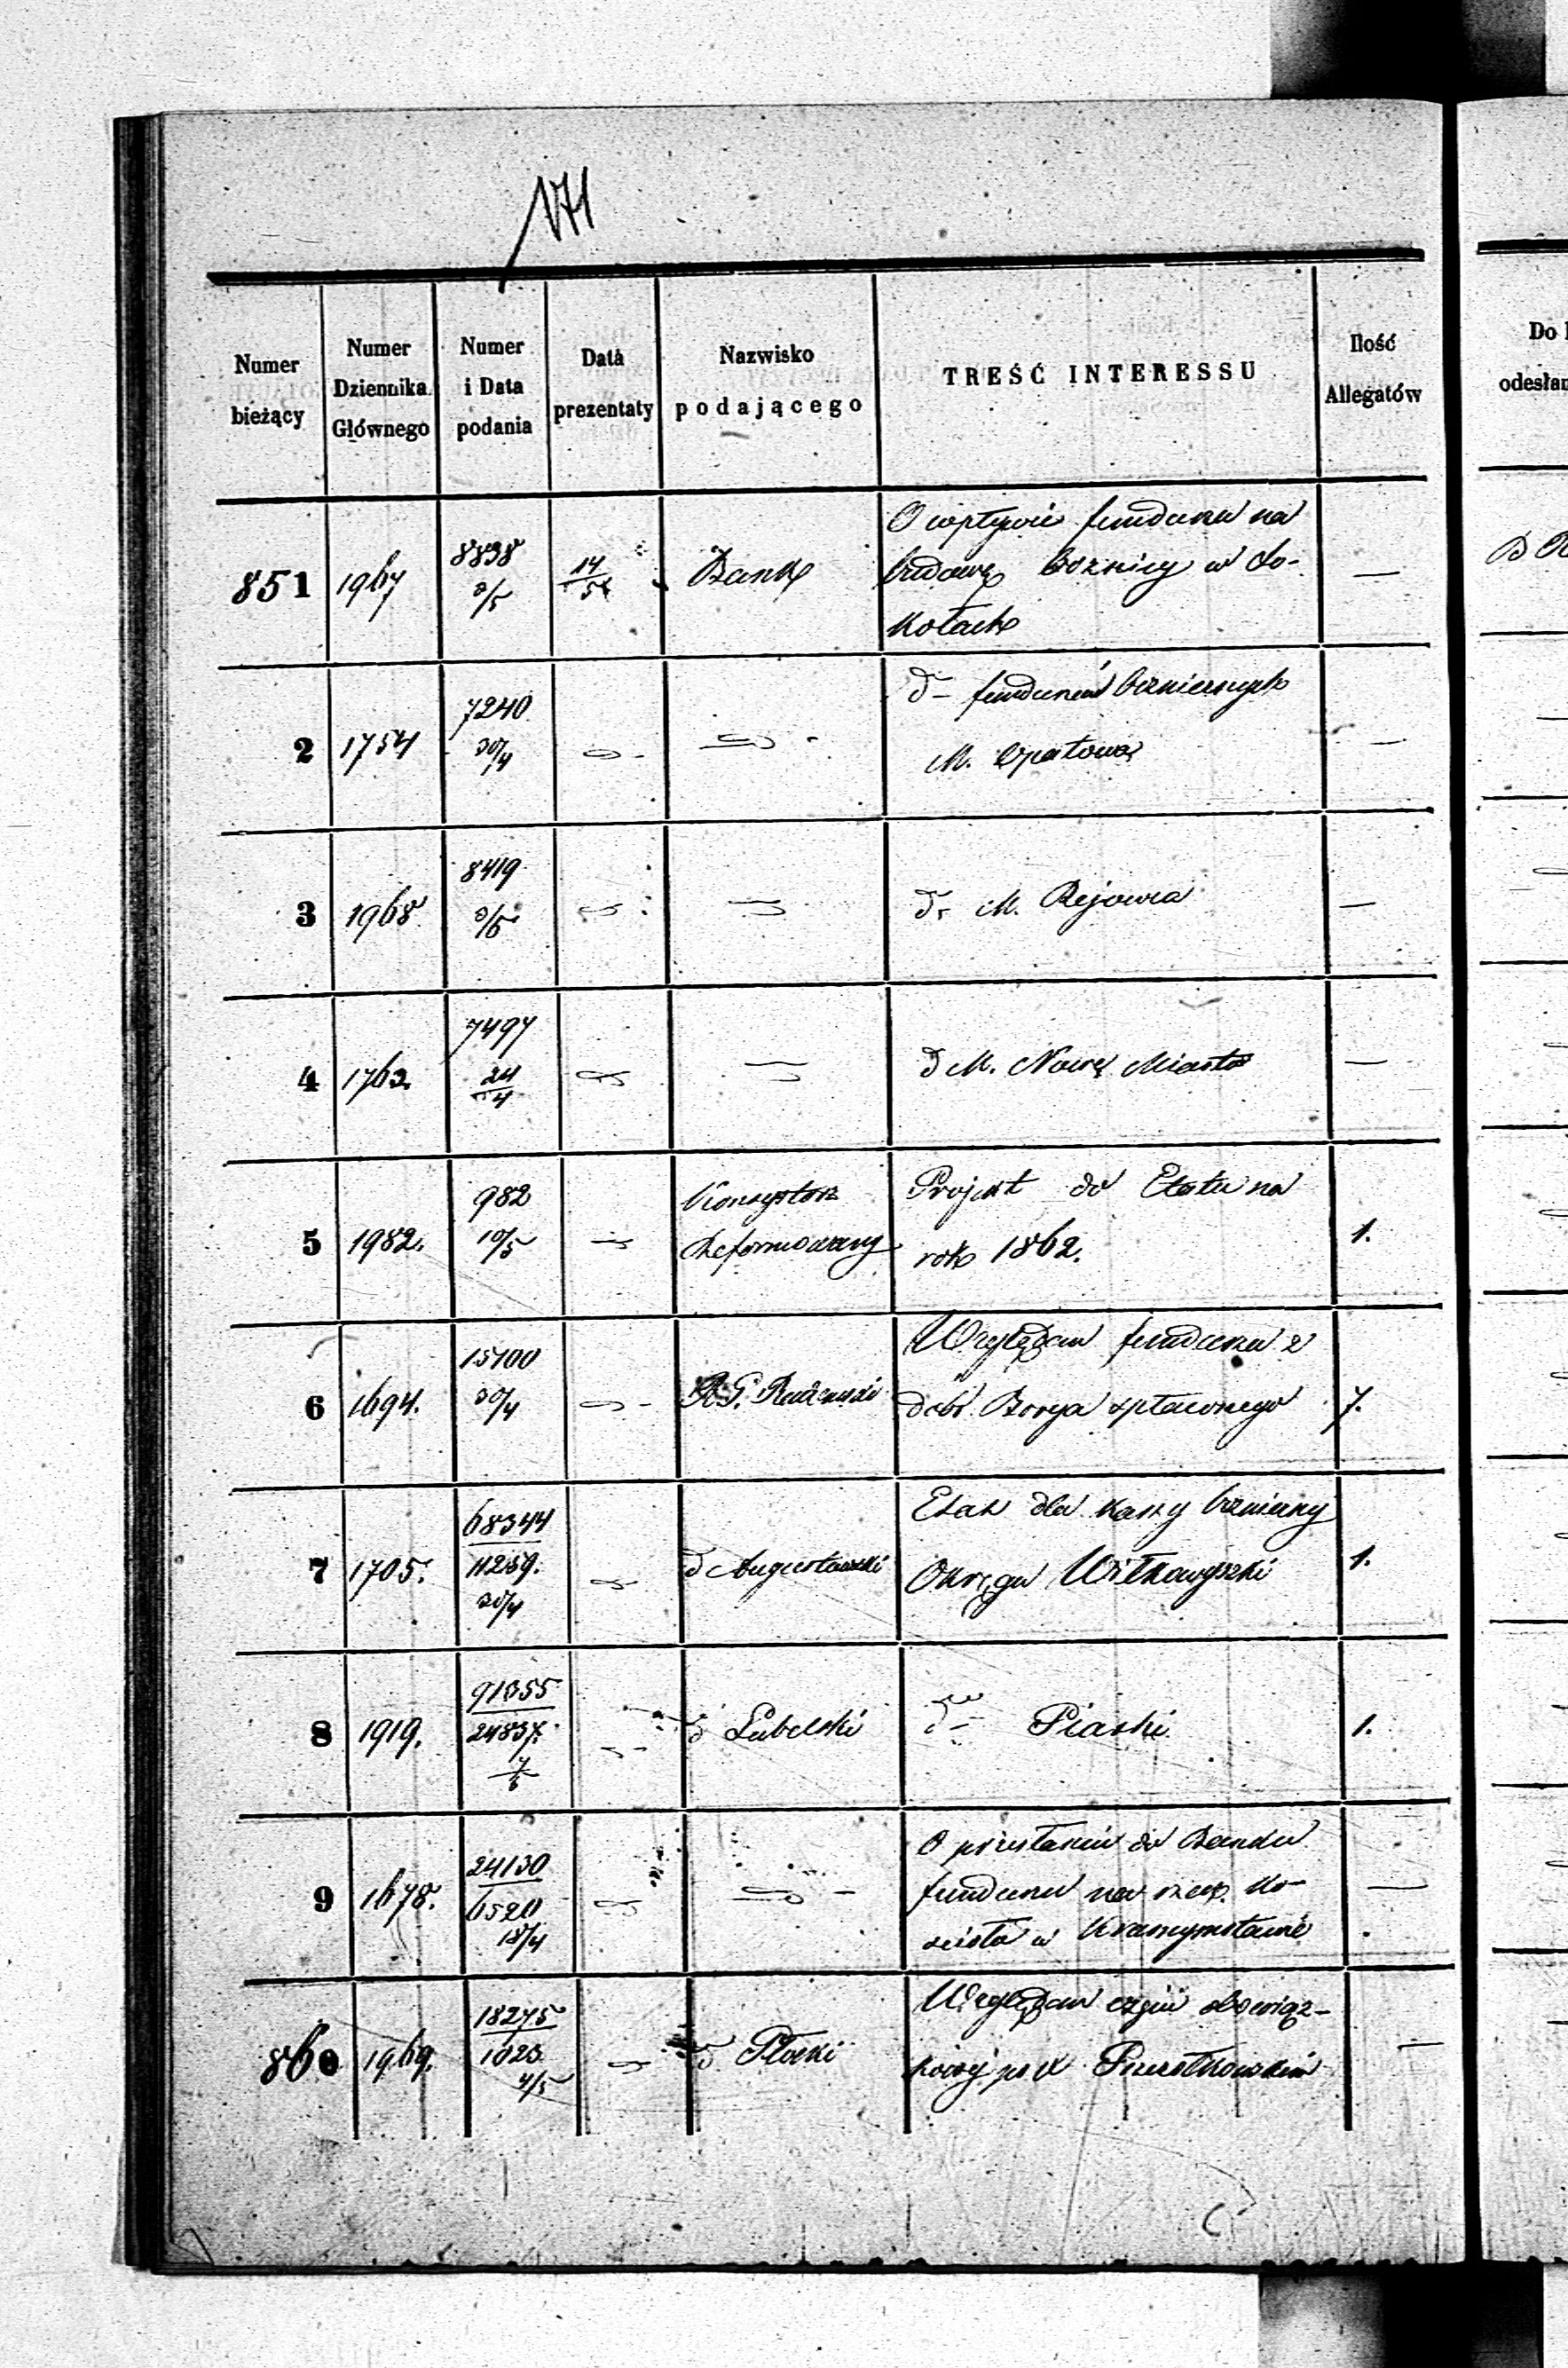 171
Numer bieżący
Numer Dziennika Głównego
Numer i Data podania
Data prezentaty
Nazwisko podającego
TREŚĆ INTERESSU
Ilość Allegatów
Do
odesłan
851 1967 8838 3/5 14/5 Bank O wpływie funduszu na
budowę bożnicy w So-
kołach —
2 1754 7240 30/4 d funduszów bożniczych
M. Opatowa —
3 1968 8419 3/5 d M. Rejowca —
4 1762. 7497 24/4 d M. Nowe Miasto —
5 1982. 982 10/5 Konsystorz Reformowany Projekt do Etatu na
rok 1862. 1.
6 1694. 15100 30/4 R. G. Radomski Względem funduszu z
dóbr Borya spłaconego 7.
7 1705. 68344 11259. 20/4 d Augustowski Etat dla kassy bożniczny
Okręgu Wiłkowyszki 1.
8 1919. 91355 24837. d Lubelski d Piaski 1.
9 1678. 24130 6520 18/4 O przesłaniu do Banku
funduszu na rzecz Ko-
ścioła w Krasnymstawie —
860 1969. 18275 1023 4/5 d Płocki Względem czyni obowiąz-
—